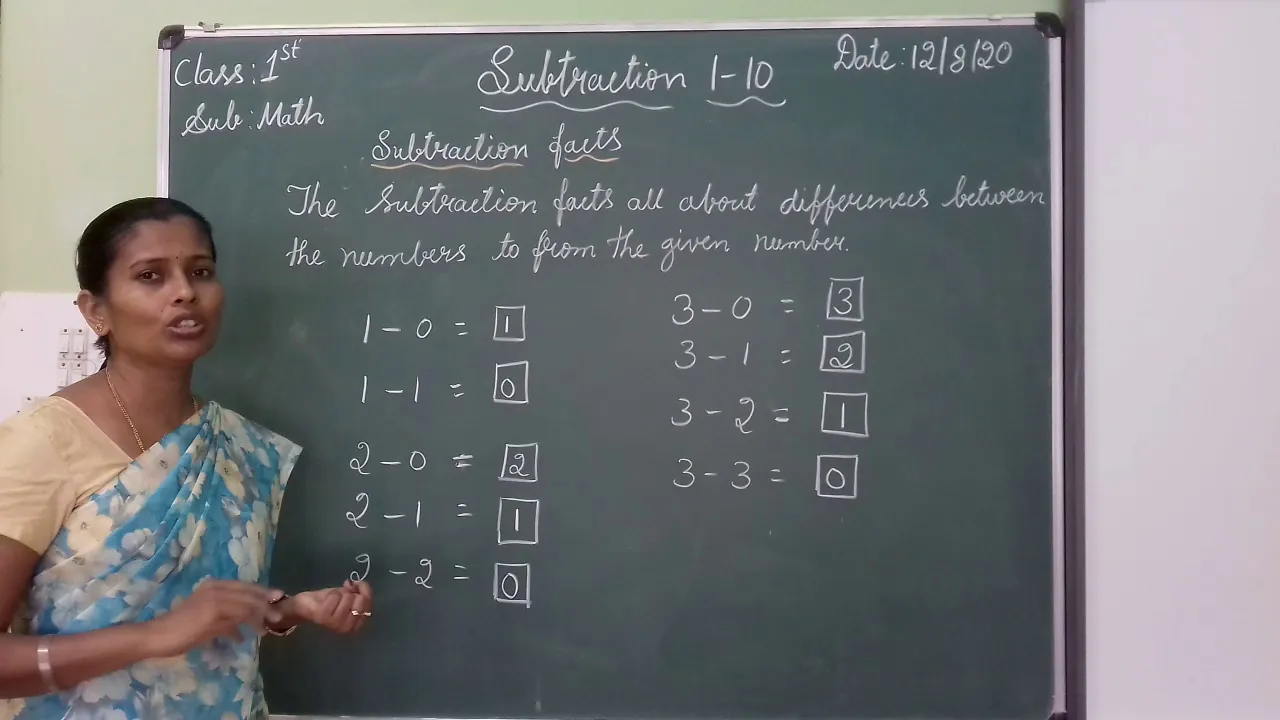 Class: 1st
Sub: Math
Subtraction 1-10
Date: 12/8/20
Subtraction facts
The Subtraction facts all about differences between
the numbers to from the given number.
1 - 0 = 1
1 - 1 = 0
2 - 0 = 2
2 - 1 = 1
2 - 2 = 0
3 - 0 = 3
3 - 1 = 2
3 - 2 = 1
3 - 3 = 0